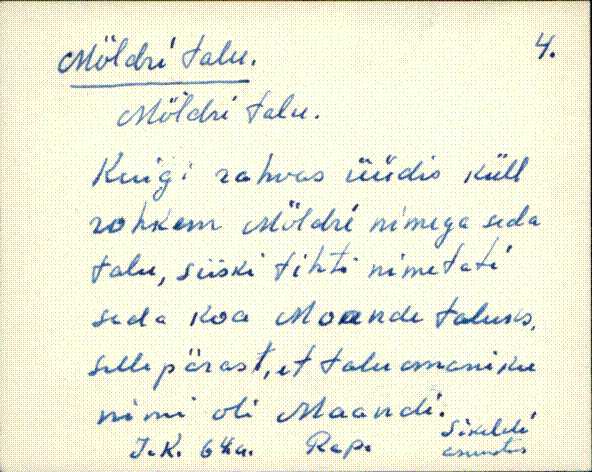 Möldri talu. 4.
Möldri talu.
Kuigi rahvas üüdis küll
rohkem Möldri nimega seda
talu, siiski tihti nimetati
seda koa Moande taluks,
sellepärast, et taluomaniku
nimi oli Maandi.
J.K. 64.a. Rap. Sikeldi
asundus